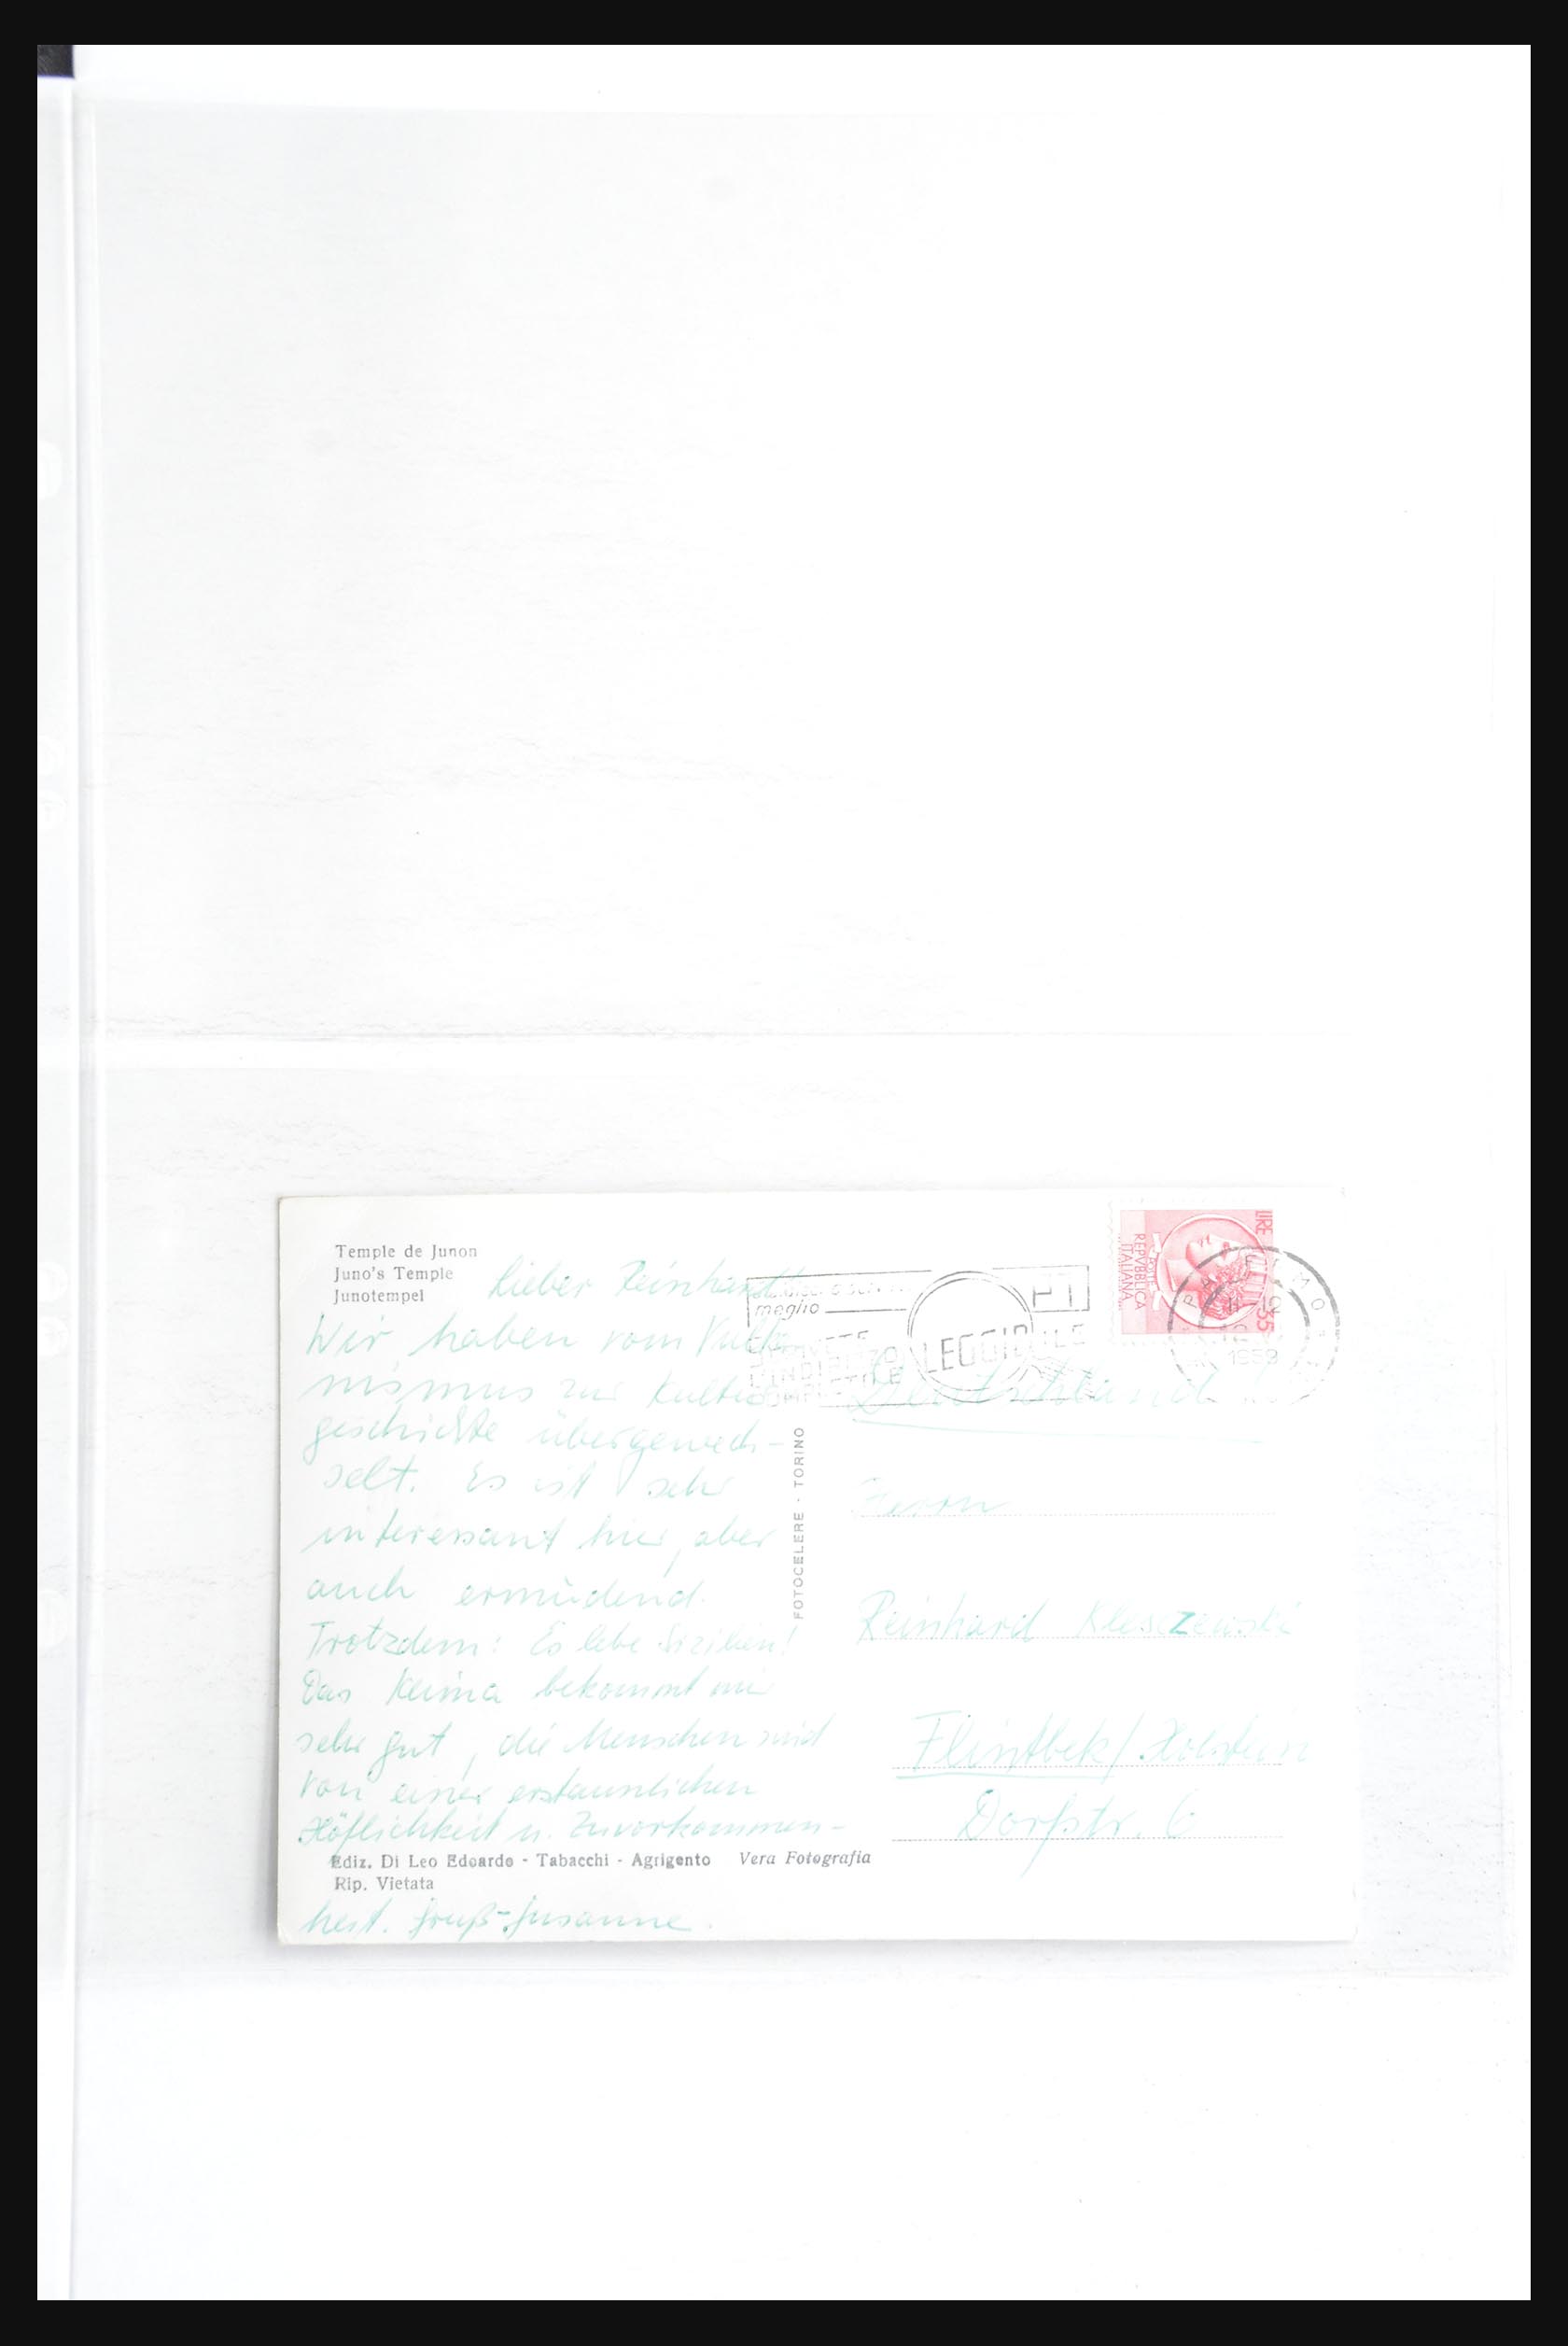 Temple de Junon
Juno's Temple
Junotempel
Lieber Reinhard!
Wir haben vom Vulka-
nismus zur Kultur
geschichte übergewech-
selt. Es ist sehr
interessant hier, aber
auch ermüdend.
Trotzdem: Es lebe Sizilien!
Das Klima bekommt mir
sehr gut, die Menschen sind
von einer erstaunlichen
Höflichkeit u. Zuvorkommen-
Ediz. Di Leo Edoardo - Tabacchi - Agrigento Vera Fotografia
Rip. Vietata
heit. Gruß - Susanne.
FOTOCELERE - TORINO
meglio
PT
L'INDIRIZZO
LEGGIBILE
LIRE
35
REPVBBLICA
ITALIANA
PALERMO
12
1959
Deutschland
Herrn
Reinhard Klesczewski
Flintbek/Holstein
Dorfstr. 6